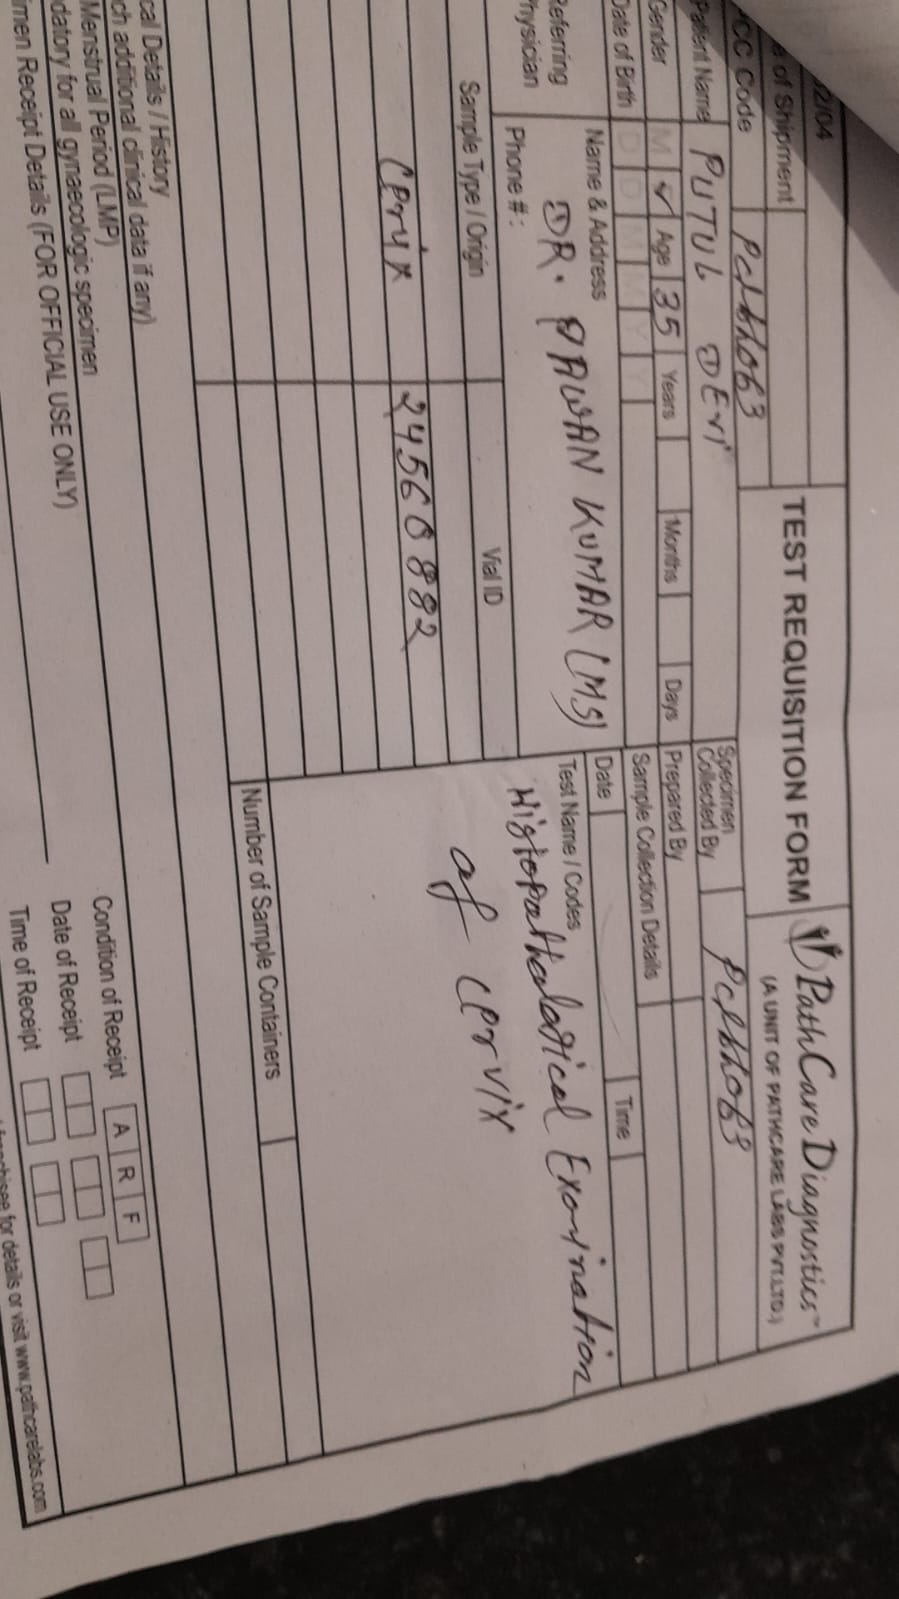 2/04
TEST REQUISITION FORM
PathCare Diagnostics™
(A UNIT OF PATHCARE LABS PVT.LTD.)
of Shipment
CC Code
Patient Name PUTUL DEVI
Specimen Collected By
Gender M ✓ Age 35 Years Months Days
Prepared By
Date of Birth D D M M Y Y
Sample Collection Details
Date Time
Referring Physician
Name & Address
DR. PAWAN KUMAR (MS)
Phone # :
Test Name / Codes
Histopathological Examination
of Cervix
Sample Type / Origin Vial ID
24560882
Number of Sample Containers
cal Details / History
ch additional clinical data if any)
Menstrual Period (LMP)
datory for all gynaecologic specimen
imen Receipt Details (FOR OFFICIAL USE ONLY)
Condition of Receipt A R F
Date of Receipt
Time of Receipt
for details or visit www.pathcarelabs.com